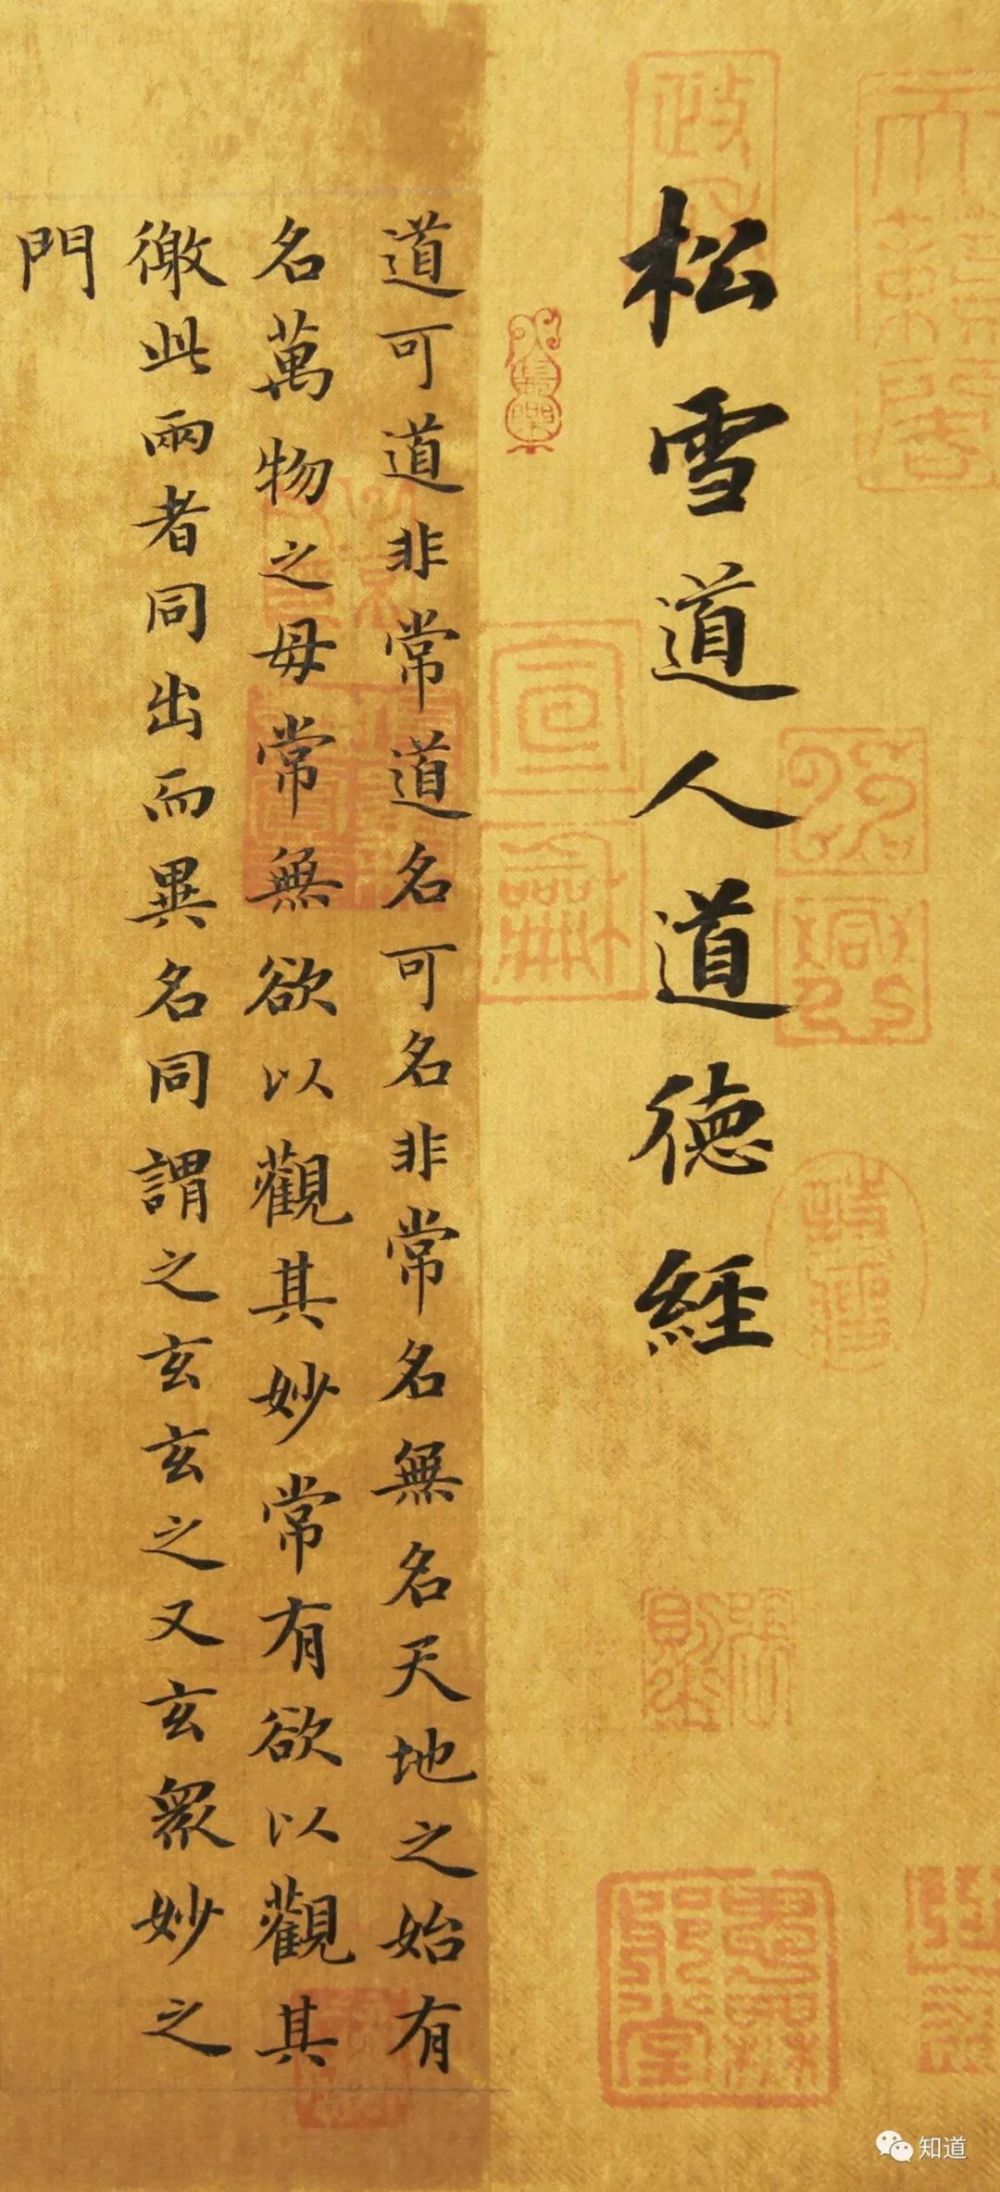 松雪道人道德經
道可道非常道名可名非常名無名天地之始有
名萬物之母常無欲以觀其妙常有欲以觀其
徼此兩者同出而異名同謂之玄玄之又玄衆妙之
門
宣龢
知道